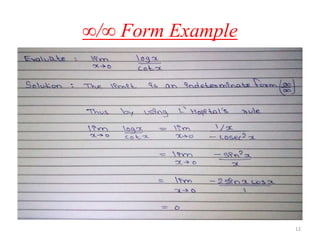 ∞/∞ Form Example
Evaluate : lim x→0 log x / cot x
Solution : The limit is an indeterminate form [∞/∞]
Thus by using L' Hopital's rule
lim x→0 log x / cot x = lim x→0 1/x / - cosec² x
= lim x→0 - sin² x / x
= lim x→0 - 2 sin x cos x / 1
= 0
12